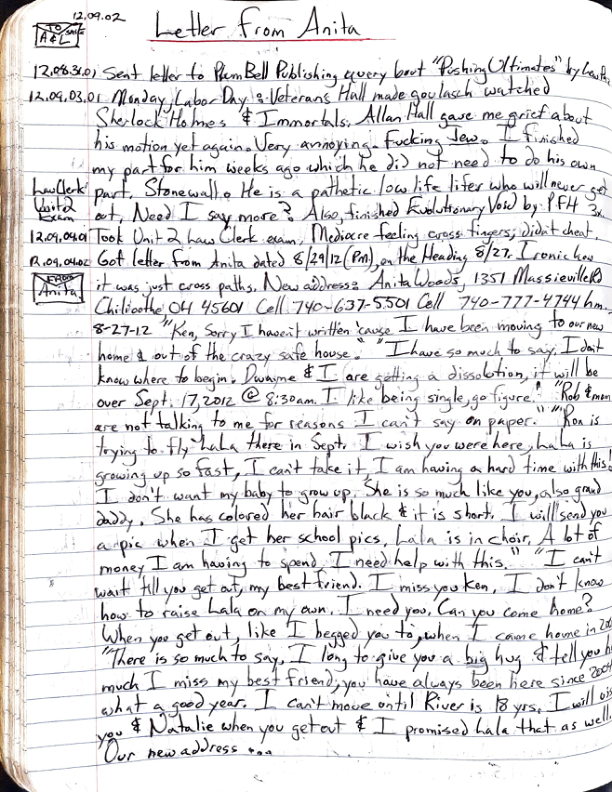 12.09.02
TO A&L SAME
Letter From Anita
12.08.31.01 Sent letter to PlumBell Publishing query bout "Pushing Ultimates" by Lew
12.09.03.01 Monday, Labor Day : Veterans Hall made goulasch watched
Sherlock Holmes & Immortals. Allan Hall gave me grief about
his motion yet again. Very annoying. Fucking Jew. I finished
my part for him weeks ago which he did not need to do his own
Law Clerk Unit 2 Exam
part. Stonewall. He is a pathetic low life lifer who will never get
out, Need I say more? Also, finished Evolutionary Void by PFH 3x
12.09.04.01 Took Unit 2 Law Clerk exam, Mediocre feeling cross fingers, didn't cheat.
12.09.04.02 Got letter from Anita dated 8/29/12 (Pm), on the Heading 8/27. Ironic how
FROM Anita
it was just cross paths. New address: Anita Woods, 1351 Massieville Rd
Chilicothe OH 45601 Cell 740-637-5501 Cell 740-777-4744 hm.
8-27-12 "Ken, Sorry I haven't written 'cause I have been moving to our new
home & out of the crazy safe house." "I have so much to say. I don't
know where to begin. Dwayne & I are getting a dissolution, it will be
over Sept. 17, 2012 @ 8:30am. I like being single, go figure." "Rob & mom
are not talking to me for reasons I can't say on paper." "Ron is
trying to fly LaLa there in Sept. I wish you were here, LaLa is
growing up so fast, I can't take it, I am having a hard time with this!
I don't want my baby to grow up. She is so much like you, also grand
daddy. She has colored her hair black & it is short. I will send you
a pic when I get her school pics. Lala is in choir. A lot of
money I am having to spend, I need help with this." "I can't
wait till you get out, my best friend. I miss you Ken, I don't know
how to raise Lala on my own. I need you. Can you come home?
When you get out, like I begged you to, when I came home in
"There is so much to say, I long to give you a big hug & tell you
much I miss my best friend, you have always been here since 2009
what a good year. I can't move until River is 18 yrs. I will
you & Natalie when you get out & I promised Lala that as well.
Our new address ...